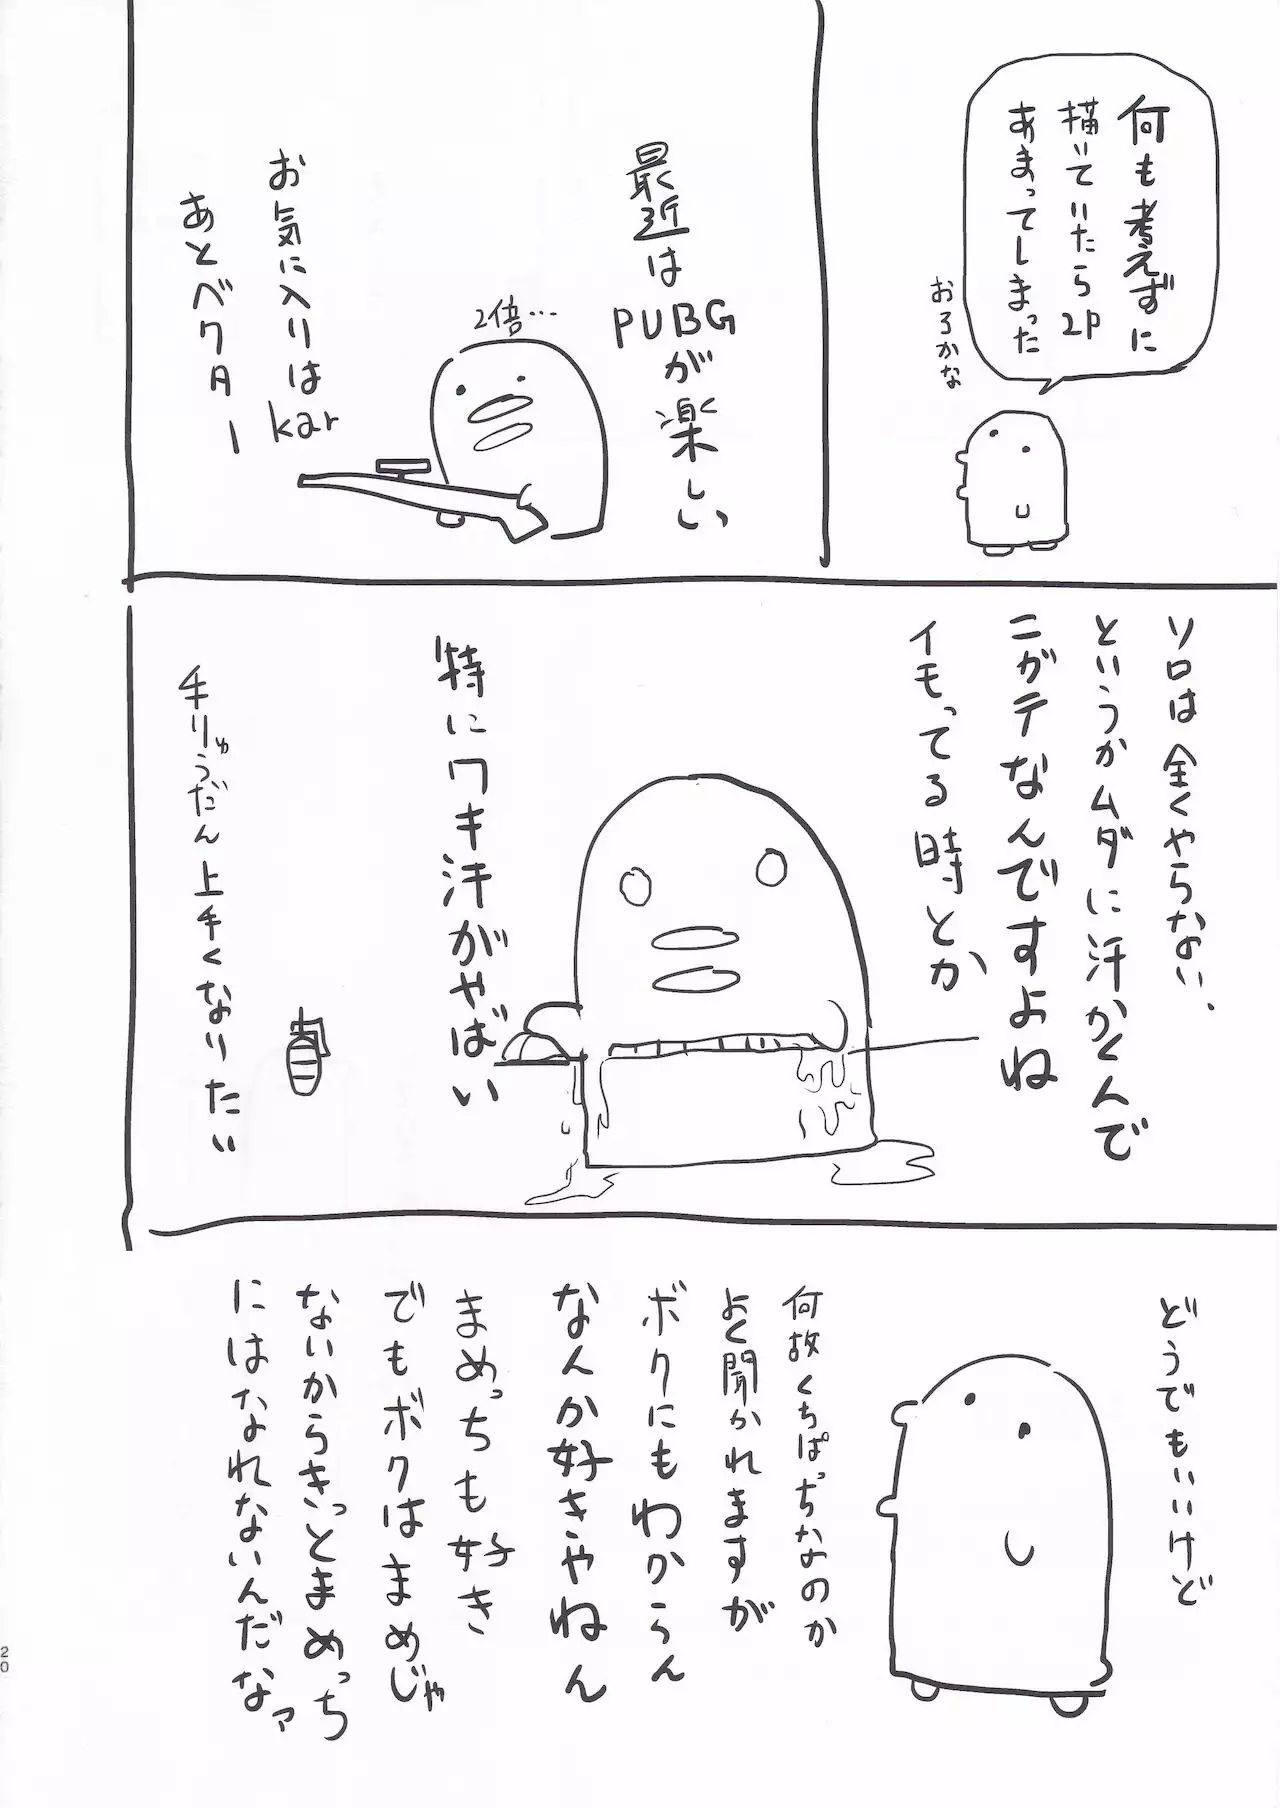 何も考えずに
描いていたら2P
あまってしまった
おろかな
最近は
PUBG
が楽しい
2倍…
お気に入りはkar
あとベクター
ソロは全くやらない、
というかムダに汗かくんで
ニガテなんですよね
イモってる時とか
特にワキ汗がやばい
手りゅうだん上手くなりたい
どうでもいいけど
何故くちぱっちなのか
よく聞かれますが
ボクにもわからん
なんか好きやねん
まめっちも好き
でもボクはまめじゃ
ないからきっとまめっち
にはなれないんだなァ
20